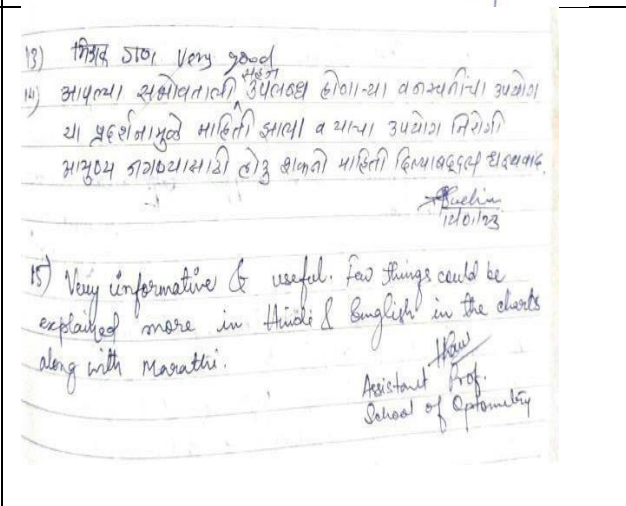 13) Very good
14) आपल्या सभोवताली सहज उपलब्ध होणाऱ्या वनस्पतींचा उपयोग
या प्रदर्शनामुळे माहिती झाला व याचा उपयोग निरोगी
आयुष्य जगण्यासाठी होवु शकतो माहिती दिल्याबद्दल धन्यवाद.
12/01/23
15) Very informative & useful. Few things could be
explained more in Hindi & English in the charts
along with Marathi.
Assistant Prof.
School of Optometry